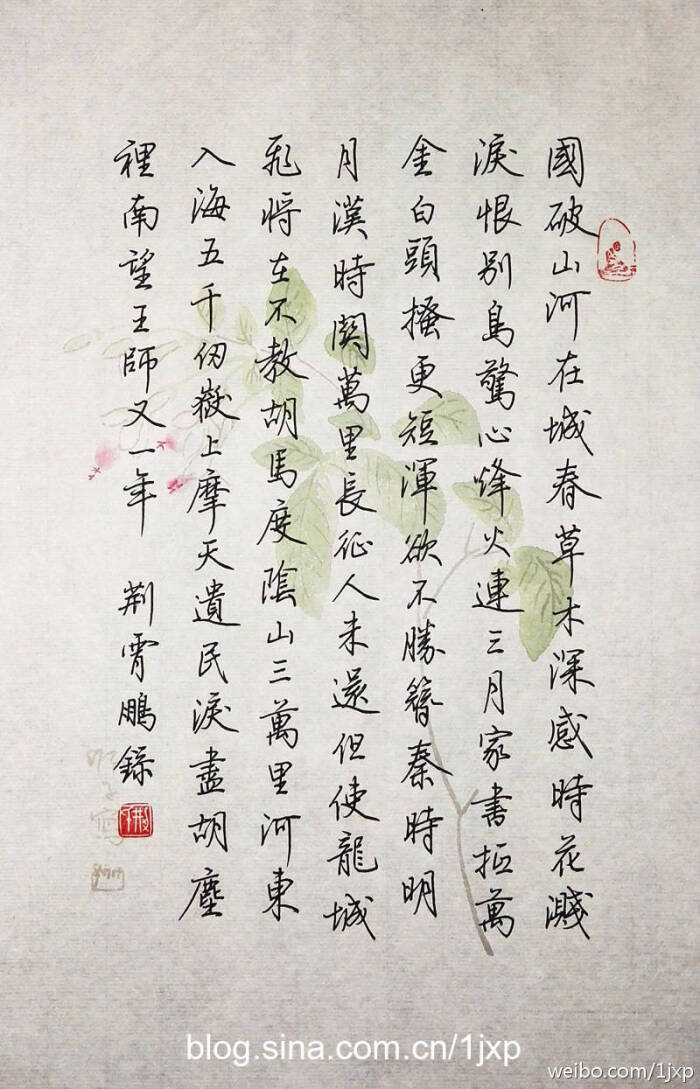 國破山河在城春草木深感時花濺
淚恨别鳥驚心烽火連三月家書抵萬
金白頭搔更短渾欲不勝簪秦時明
月漢時關萬里長征人未還但使龍城
飛將在不教胡馬度陰山三萬里河東
入海五千仞嶽上摩天遺民淚盡胡塵
裡南望王師又一年 荆霄鵬錄
blog.sina.com.cn/1jxp
weibo.com/1jxp